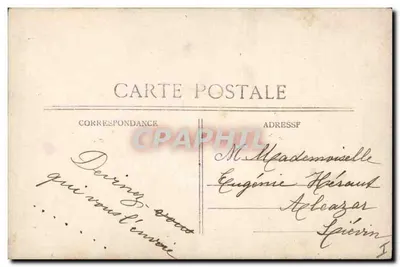 CARTE POSTALE
CORRESPONDANCE
ADRESSE
CPAPHIL
Devinez-vous
qui vous l'envoie
. . . . . . .
M Mademoiselle
Eugénie Héraut
Alcazar
Liévin